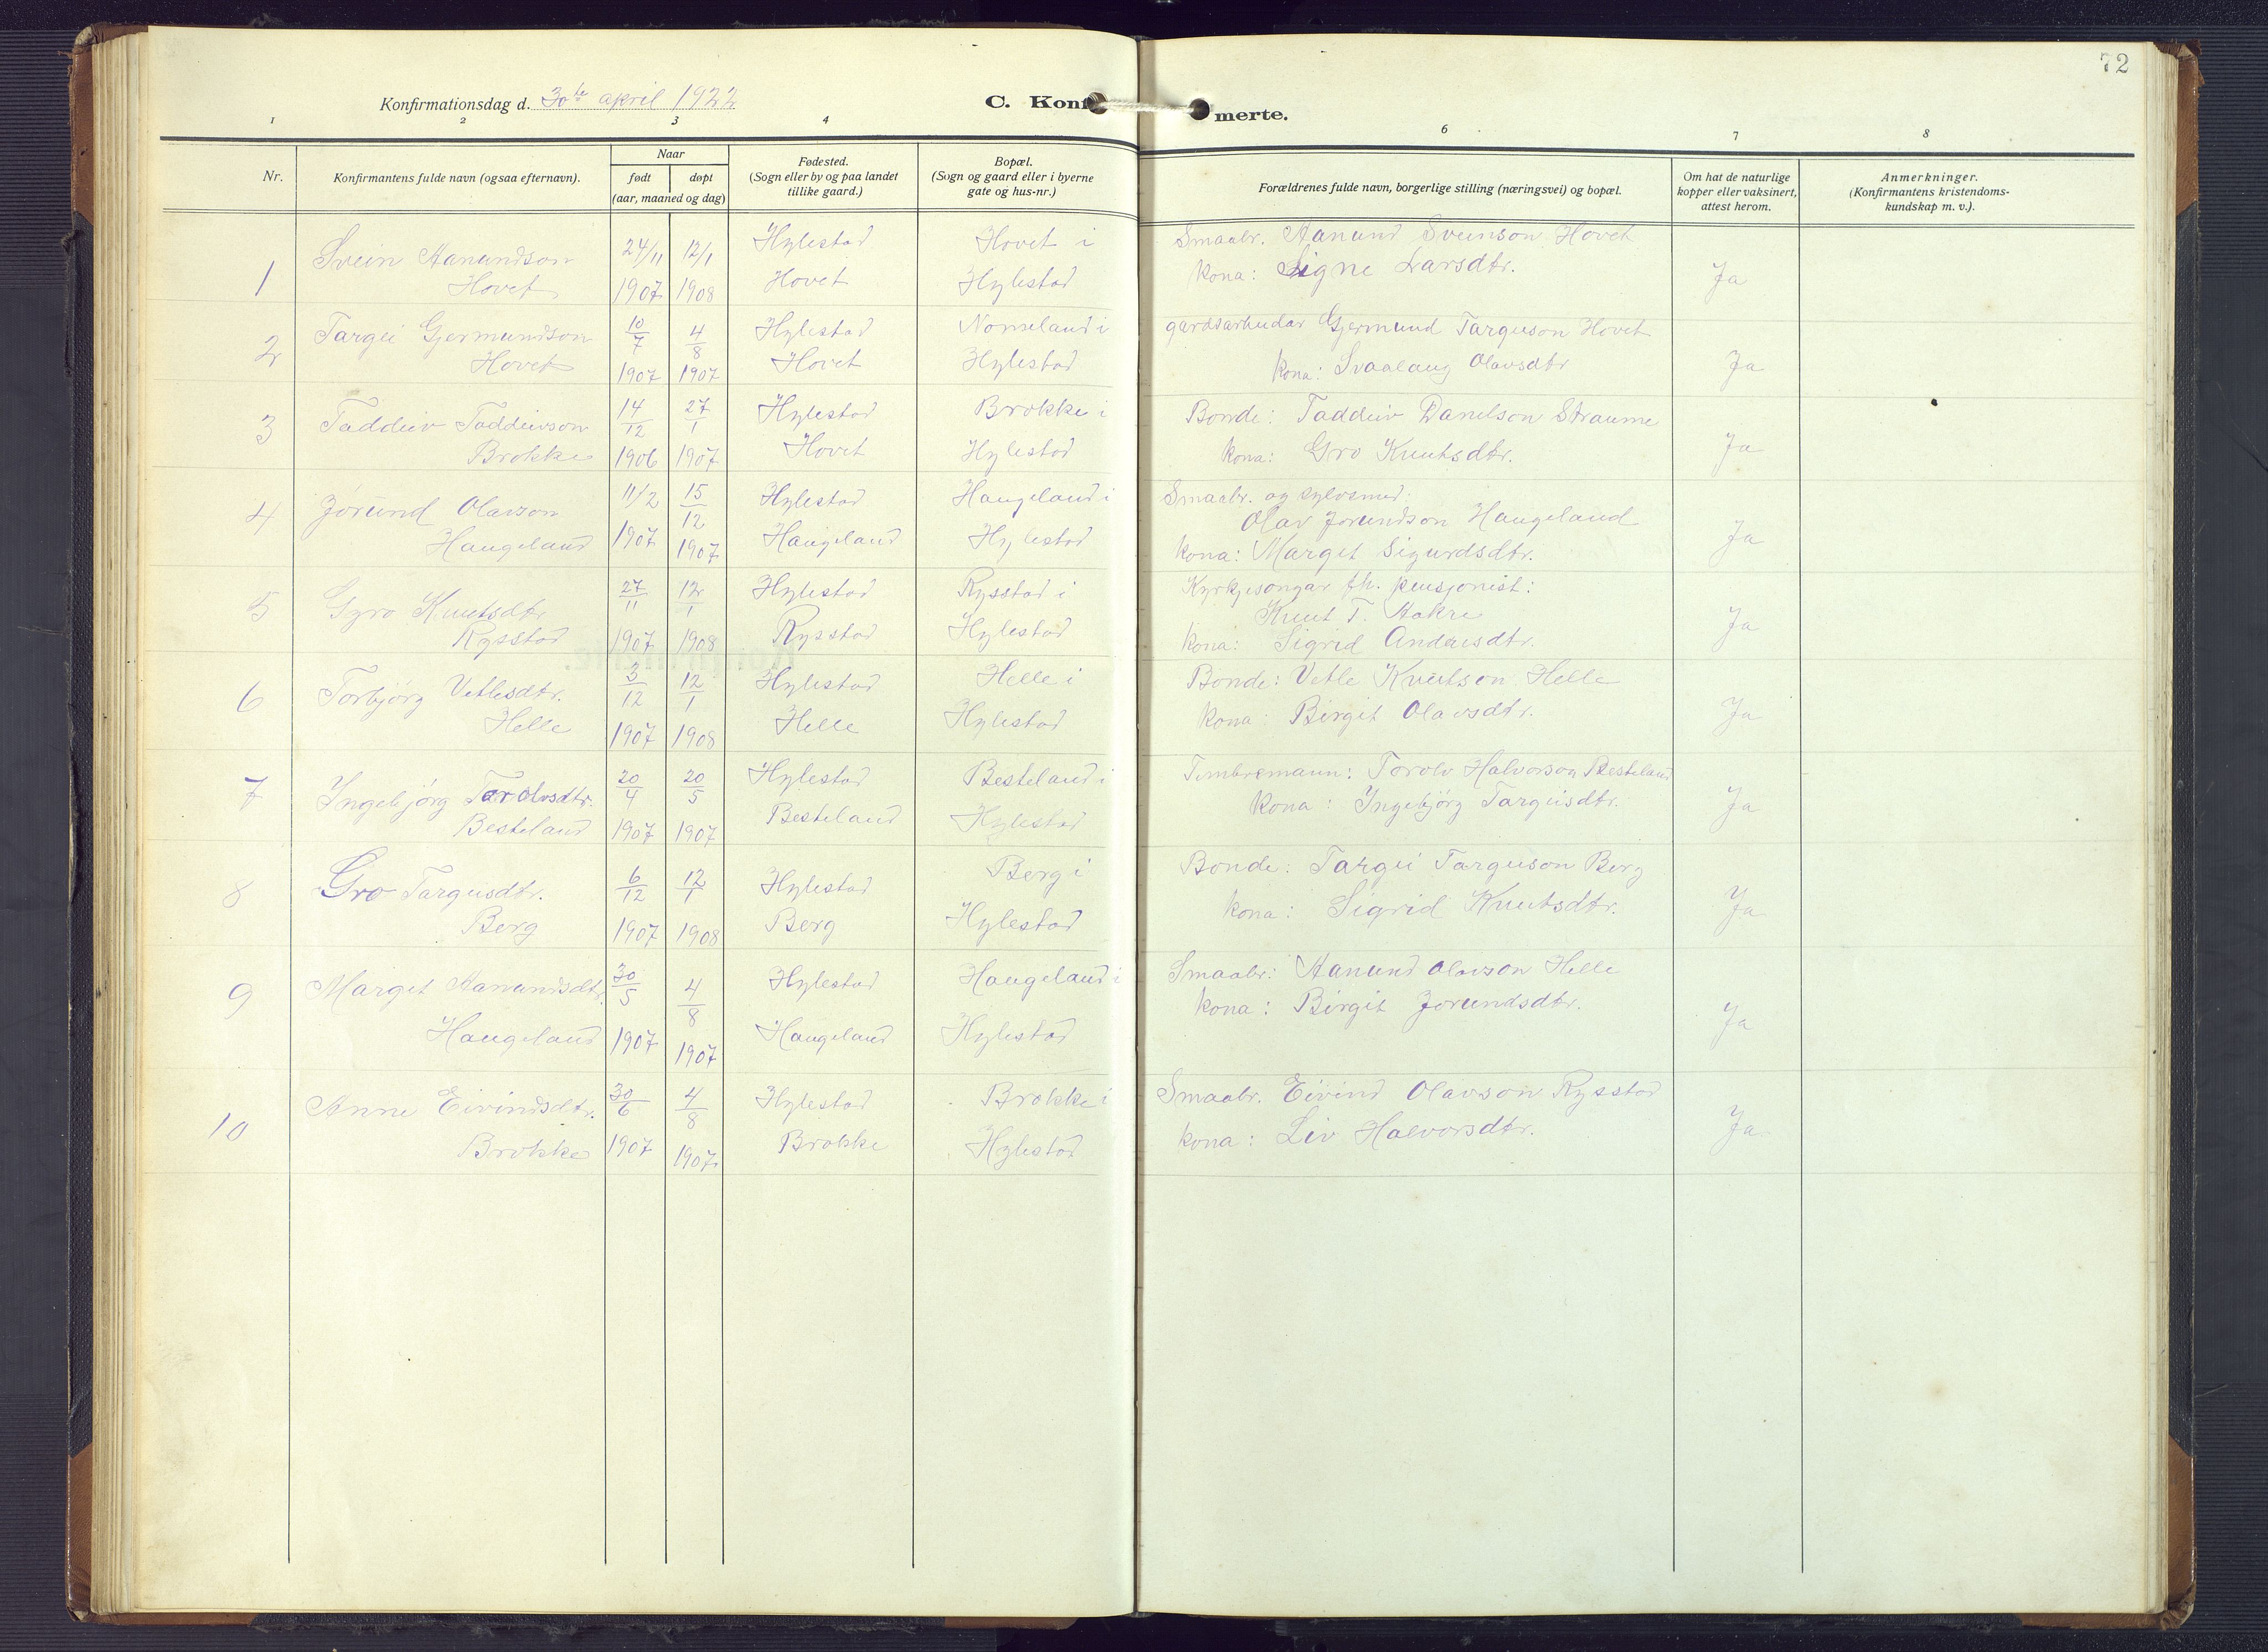 72
Konfirmationsdag d. 30te april 1922
C. Konf
merte.
1 2 3 4
6 7 8
Nr.
Konfirmantens fulde navn (ogsaa efternavn).
Naar
født døpt
(aar, maaned og dag)
Fødested.
(Sogn eller by og paa landet
tillike gaard.)
Bopæl.
(Sogn og gaard eller i byerne
gate og hus-nr.)
Forældrenes fulde navn, borgerlige stilling (næringsvei) og bopæl.
Om hat de naturlige
kopper eller vaksinert,
attest herom.
Anmerkninger.
(Konfirmantens kristendoms-
kundskap m. v.).
1 Svein Aanundson 24/11 12/1 Hylestad Hovet i Smaabr. Aanund Sveinson Hovet
Hovet 1907 1908 Hovet Hylestad kona: Signe Larsdtr. Ja
2 Targei Gjermundson 10/7 4/8 Hylestad Nomeland i gardsarbudar Gjermund Targeison Hovet
Hovet 1907 1907 Hovet Hylestad kona: Svaalaug Olavsdtr Ja
3 Taddeiv Taddeivson 14/12 27/1 Hylestad Brokke i Bonde: Taddeiv Danelson Straume
Brokke 1906 1907 Hovet Hylestad kona: Gro Knutsdtr. Ja
4 Jorund Olavson 11/2 15/12 Hylestad Haugeland i Smaabr. og sylvsmed:
Olav Jorundson Haugeland
Haugeland 1907 1907 Haugeland Hylestad kona: Marget Sigurdsdtr. Ja
5 Gyro Knutsdtr 27/11 12/1 Hylestad Rysstad i Kyrkjesongar fh. pensjonist:
Knut T. Aakre
Rysstad 1907 1908 Rysstad Hylestad kona: Sigrid Andersdtr. Ja
6 Torbjörg Vetlesdtr. 3/12 12/1 Hylestad Helle i Bonde: Vetle Knutson Helle
Helle 1907 1908 Helle Hylestad kona: Birgit Olavsdtr. Ja
7 Yngebjörg Torolvsdtr. 20/4 20/5 Hylestad Besteland i Timbremann: Torolv Halvorson Besteland
Besteland 1907 1907 Besteland Hylestad kona: Yngebjörg Targeisdtr. Ja
8 Gro Targeisdtr. 6/12 12/1 Hylestad Berg i Bonde: Targei Targeison Berg
Berg 1907 1908 Berg Hylestad kona: Sigrid Knutsdtr. Ja
9 Marget Aanundsdtr. 30/5 4/8 Hylestad Haugeland i Smaabr: Aanund Olavson Helle
Haugeland 1907 1907 Haugeland Hylestad kona: Birgit Jorundsdtr. Ja
10 Anne Eivindsdtr. 30/6 4/8 Hylestad Brokke i Smaabr. Eivind Olavson Rysstad
Brokke 1907 1907 Brokke Hylestad kona: Liv Halvorsdtr. Ja